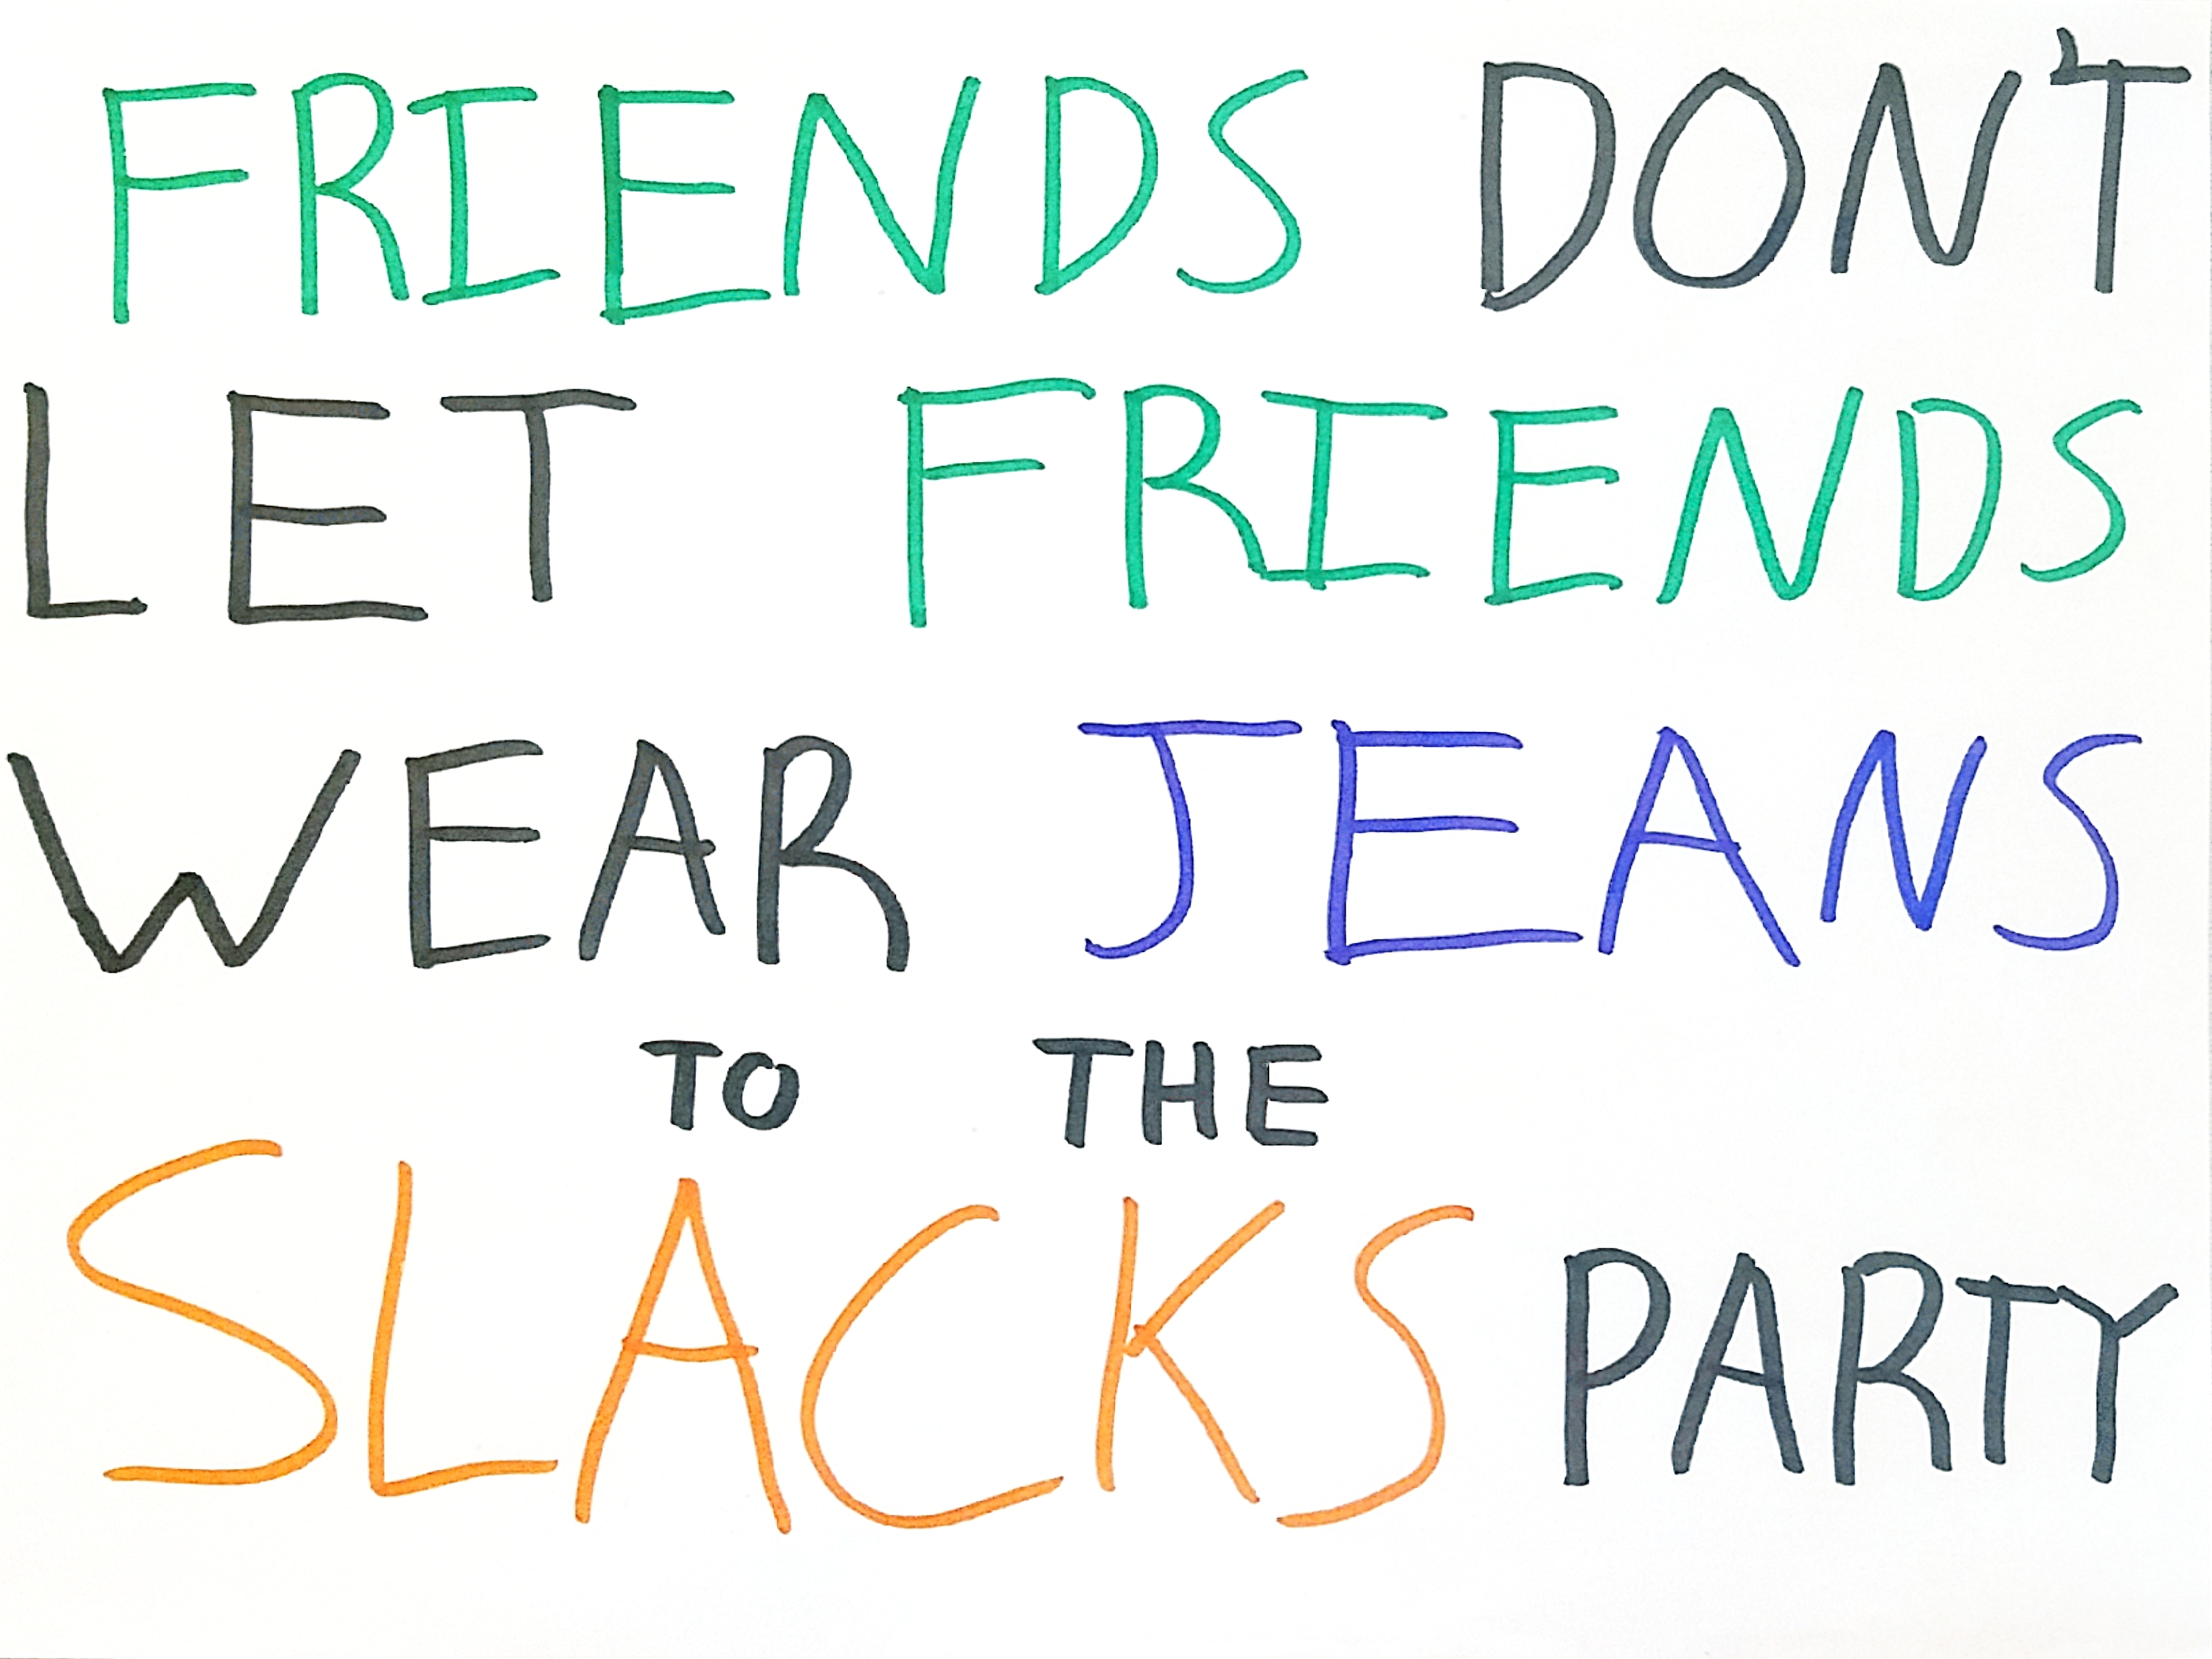 FRIENDS DON'T
LET FRIENDS
WEAR JEANS
TO THE
SLACKS PARTY